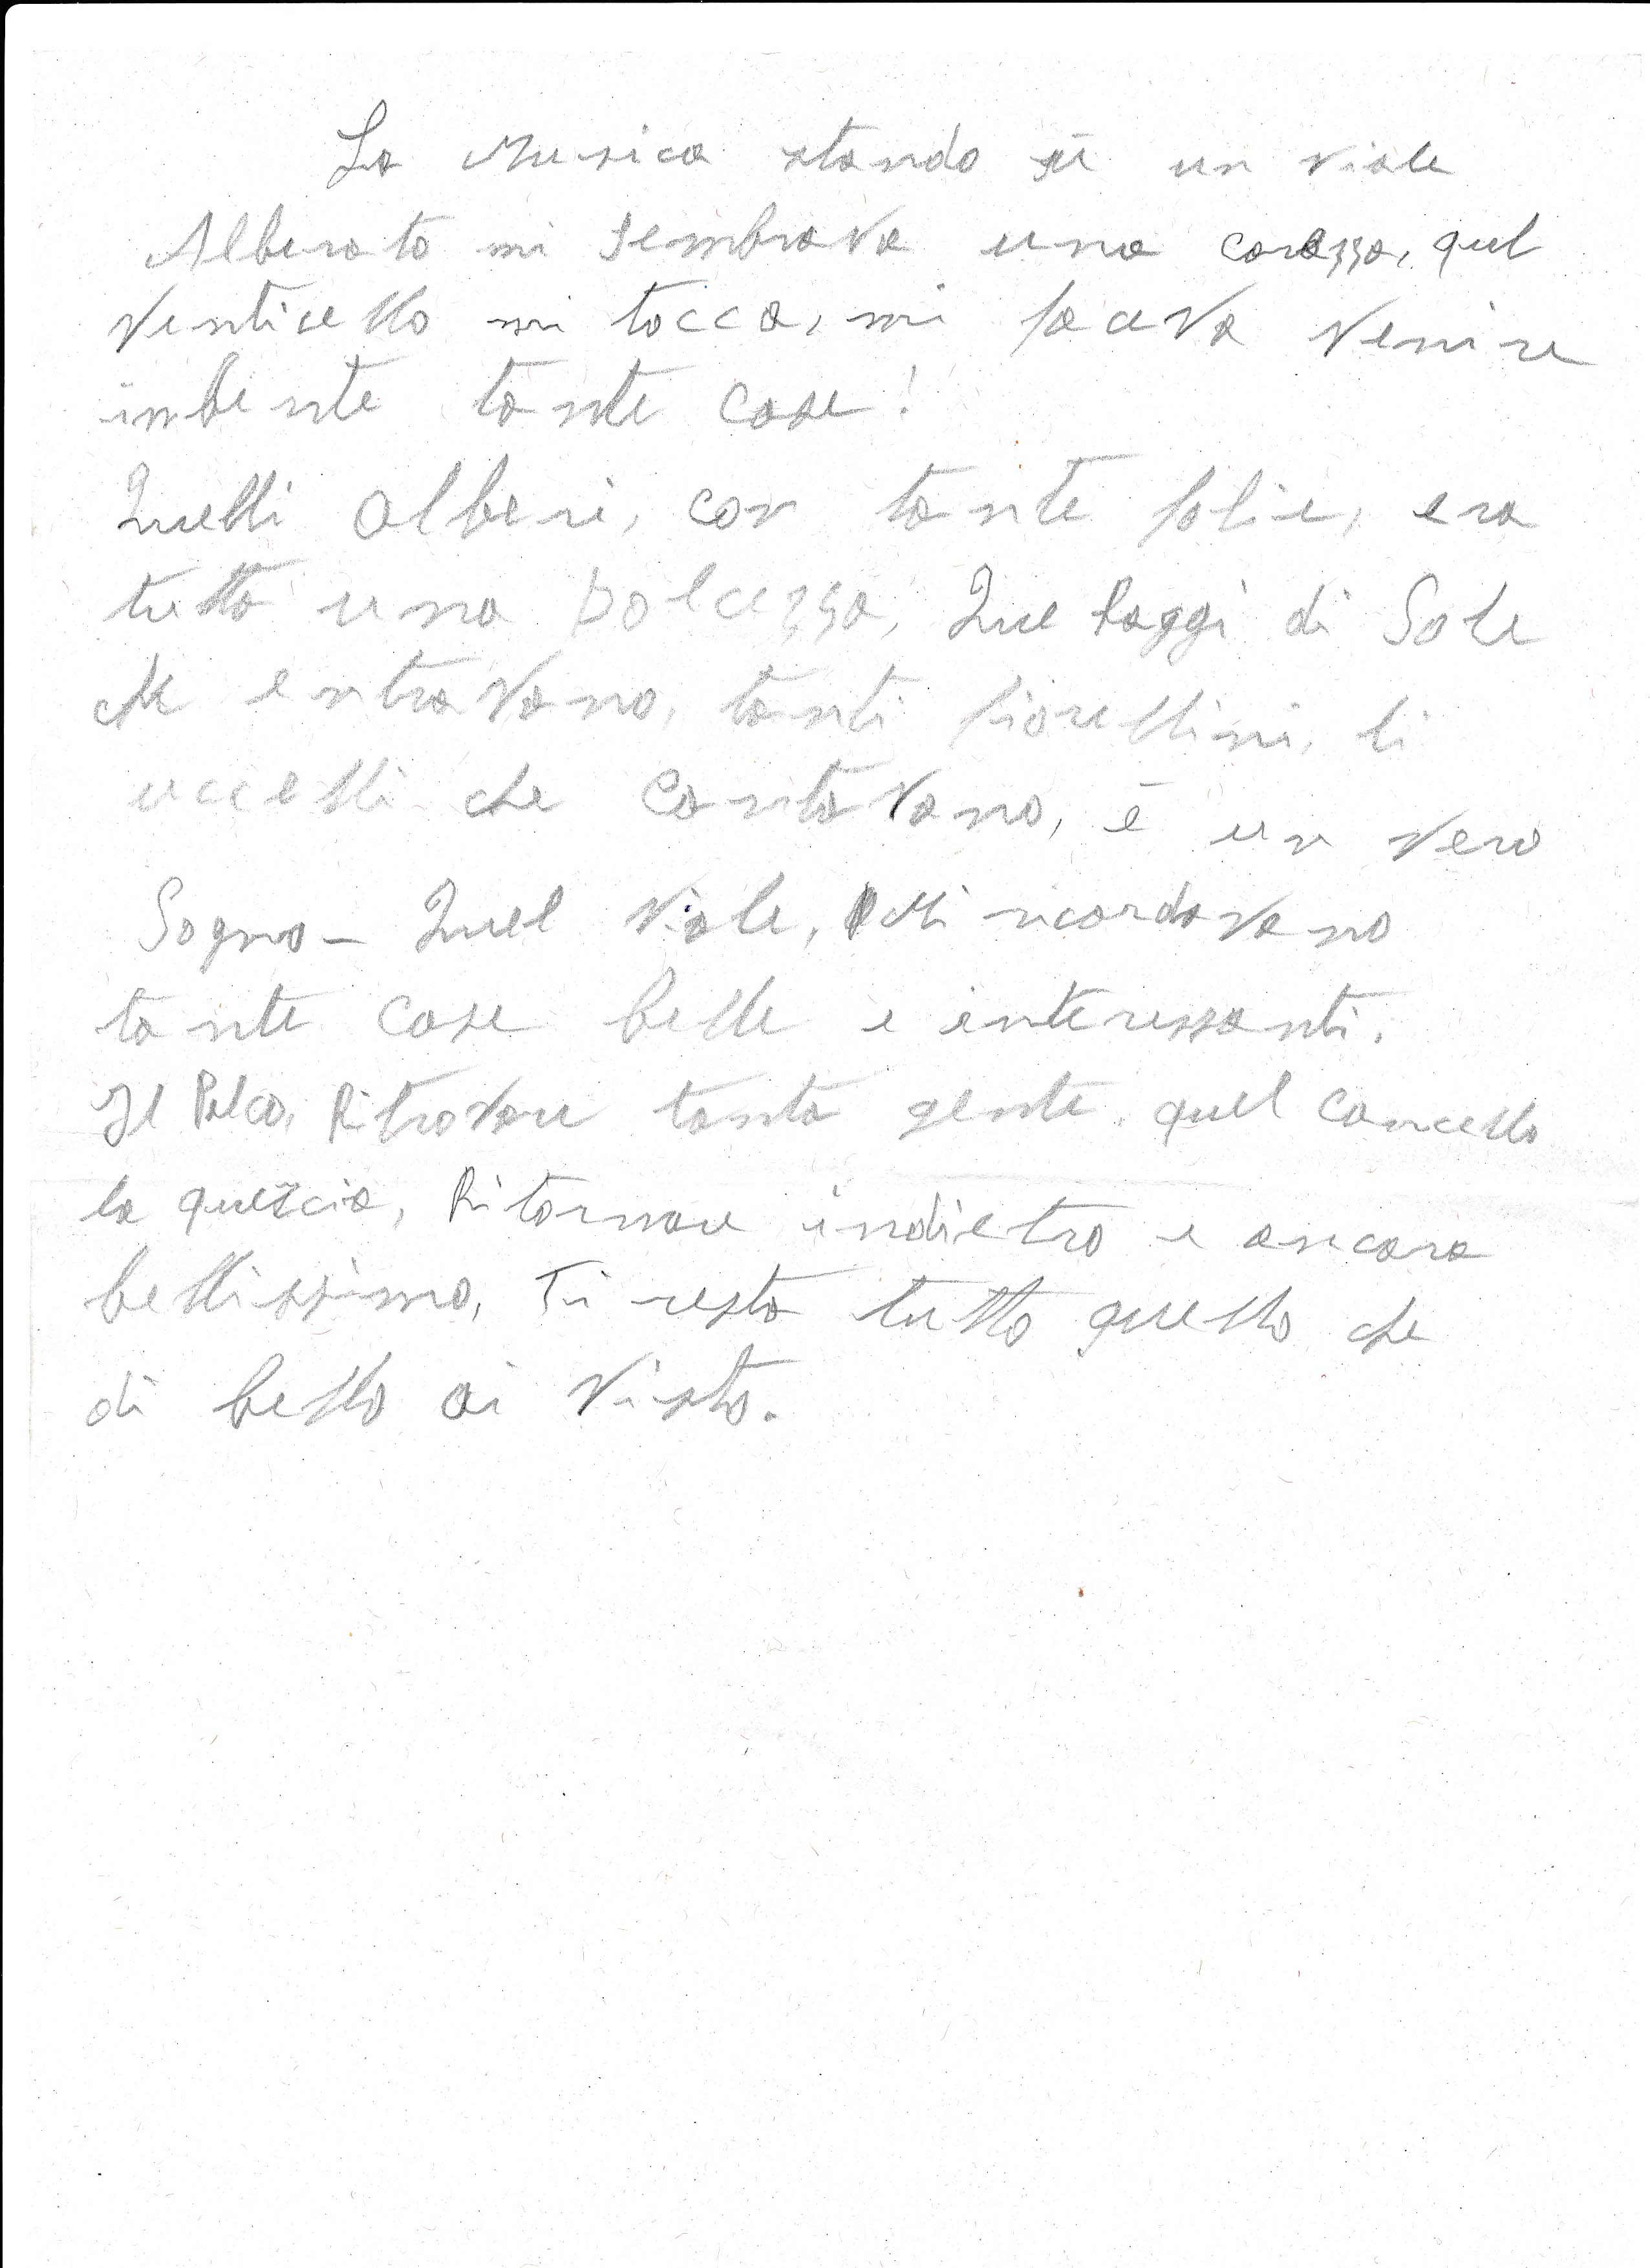 La Musica stando sù un viale
Alberato mi sembrava una carezza, quel
venticello mi tocca, mi faceva venire
inbente tante cose!
Quelli alberi, con tante folie, era
tutta una Dolcezza, Quel Raggi di Sole
che entravano, tanti fiorellini, li
uccelli che cantavano, è un vero
Sogno - Quel viale, Mi ricordavano
tante cose belle e interessanti.
Il Palco, Ritrovare tanta gente, quel cancello
la quercia, Ritornare indietro e ancora
bellissimo, Ti resta tutto quello che
di bello ai visto.